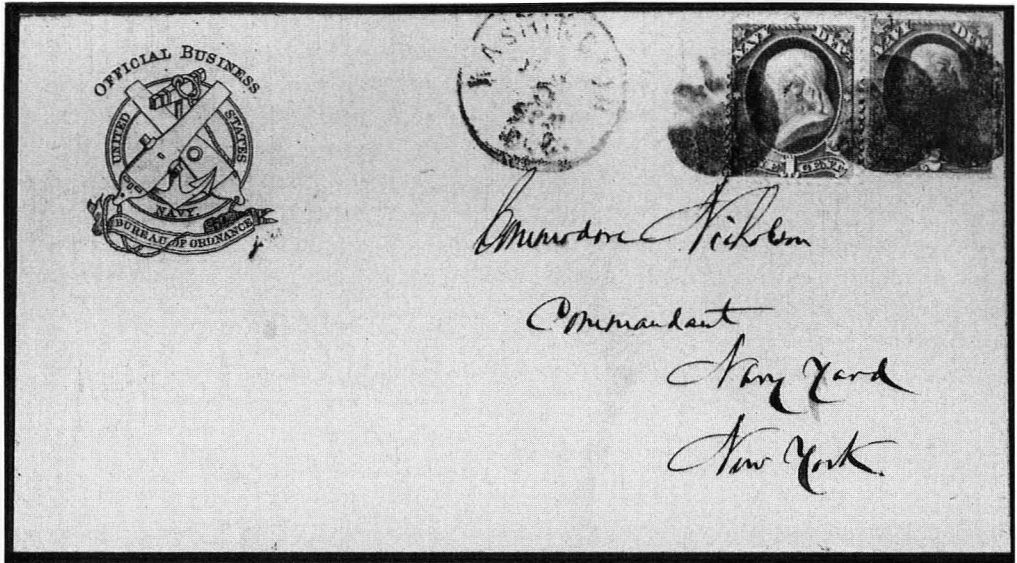 OFFICIAL BUSINESS
UNITED STATES
NAVY.
BUREAU OF ORDNANCE
WASHINGTON
NAVY DEPT.
1
NAVY DEPT.
Commodore Nicholson
Commandant
Navy Yard
New York.